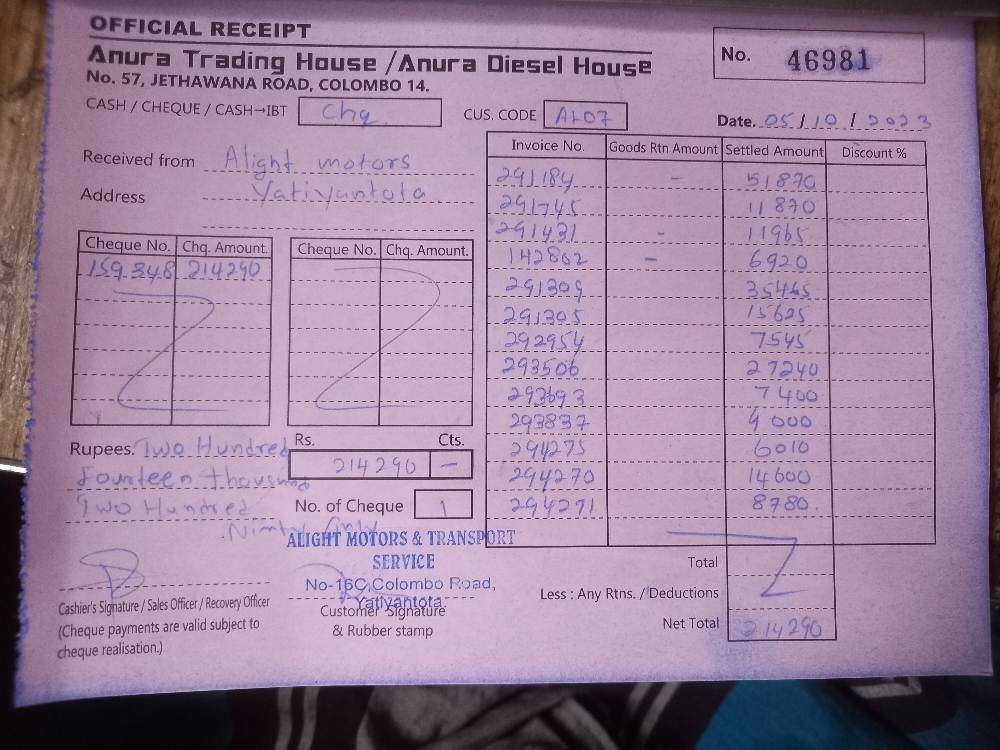 OFFICIAL RECEIPT
Anura Trading House / Anura Diesel House
No. 57, JETHAWANA ROAD, COLOMBO 14.
No. 46981
CASH / CHEQUE / CASH→IBT Chq
CUS. CODE AL07
Date. 05/10/2023
Received from Alight motors
Address Yatiyantota
Cheque No. Chq. Amount. Cheque No. Chq. Amount.
159348 214290
Invoice No. Goods Rtn Amount Settled Amount Discount %
291184 - 51870
291745 11870
291431 - 11965
142862 - 6920
291309 35465
291305 15625
292954 7545
293506 27240
293693 7400
293837 9000
294275 6010
294270 14600
294271 8780.
Rupees. Two Hundred
Fourteen thousand
Two Hundred
Ninty Only
Rs. Cts.
214290 —
No. of Cheque 1
ALIGHT MOTORS & TRANSPORT
SERVICE
No-16C, Colombo Road,
Yatiyantota.
Cashier's Signature / Sales Officer / Recovery Officer
(Cheque payments are valid subject to
cheque realisation.)
Customer Signature
& Rubber stamp
Total
Less : Any Rtns. / Deductions
Net Total 214290